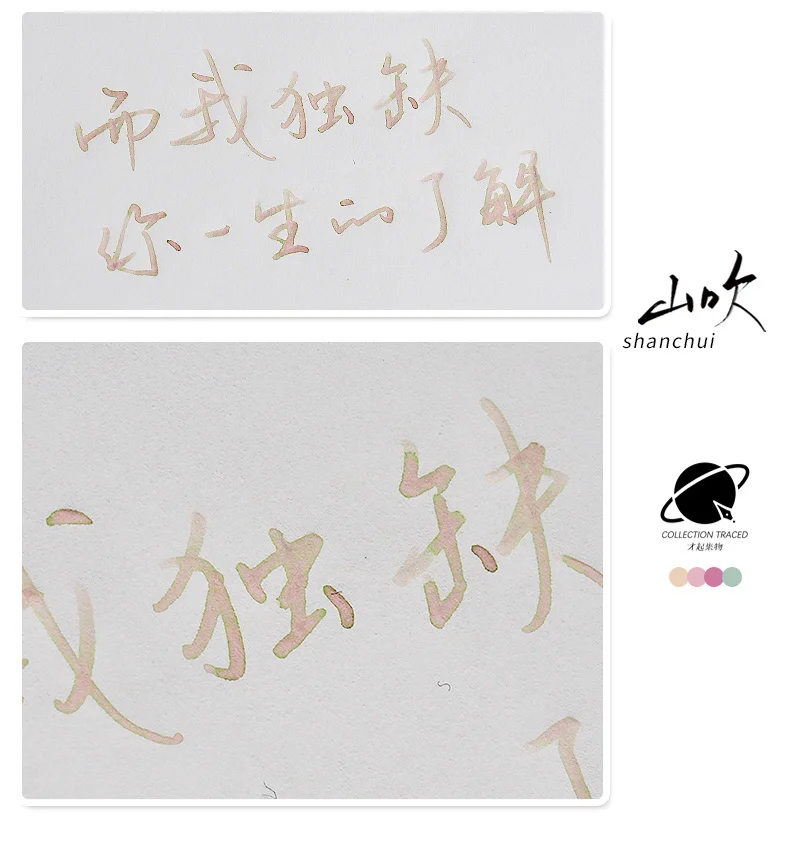 而我独缺
你一生的了解
山吹
shanchui
我独缺
了
COLLECTION TRACED
才起集物